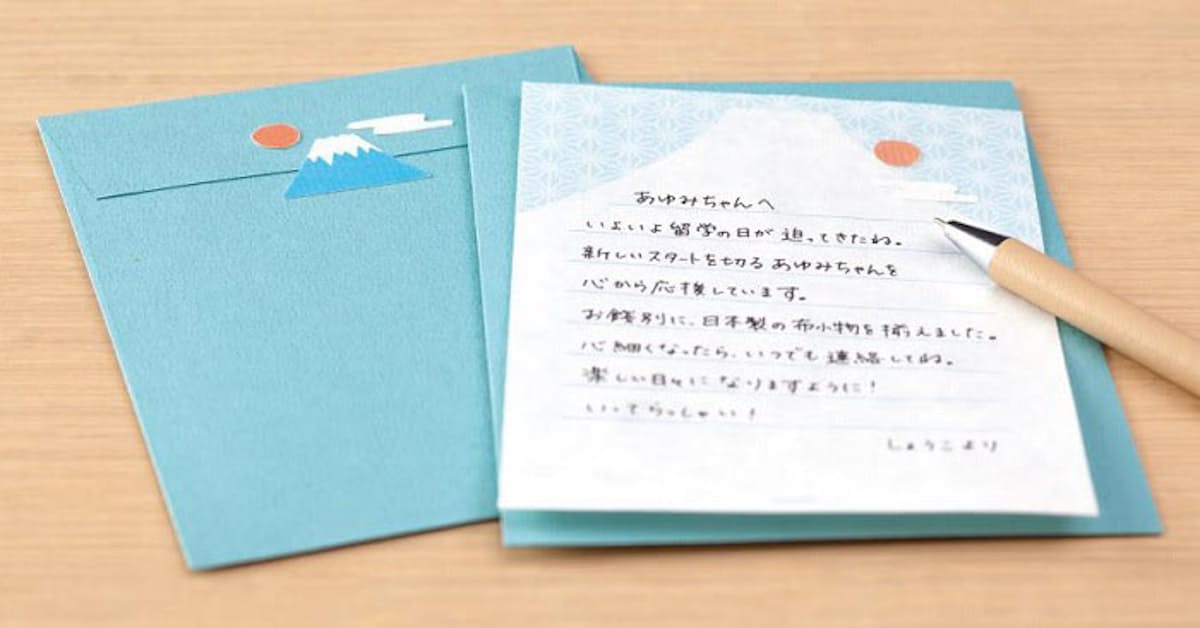 あゆみちゃんへ
いよいよ留学の日が迫ってきたね。
新しいスタートを切るあゆみちゃんを
心から応援しています。
お餞別に、日本製の布小物を揃えました。
心細くなったら、いつでも連絡してね。
楽しい日々になりますように！
いってらっしゃい！
しょうこより